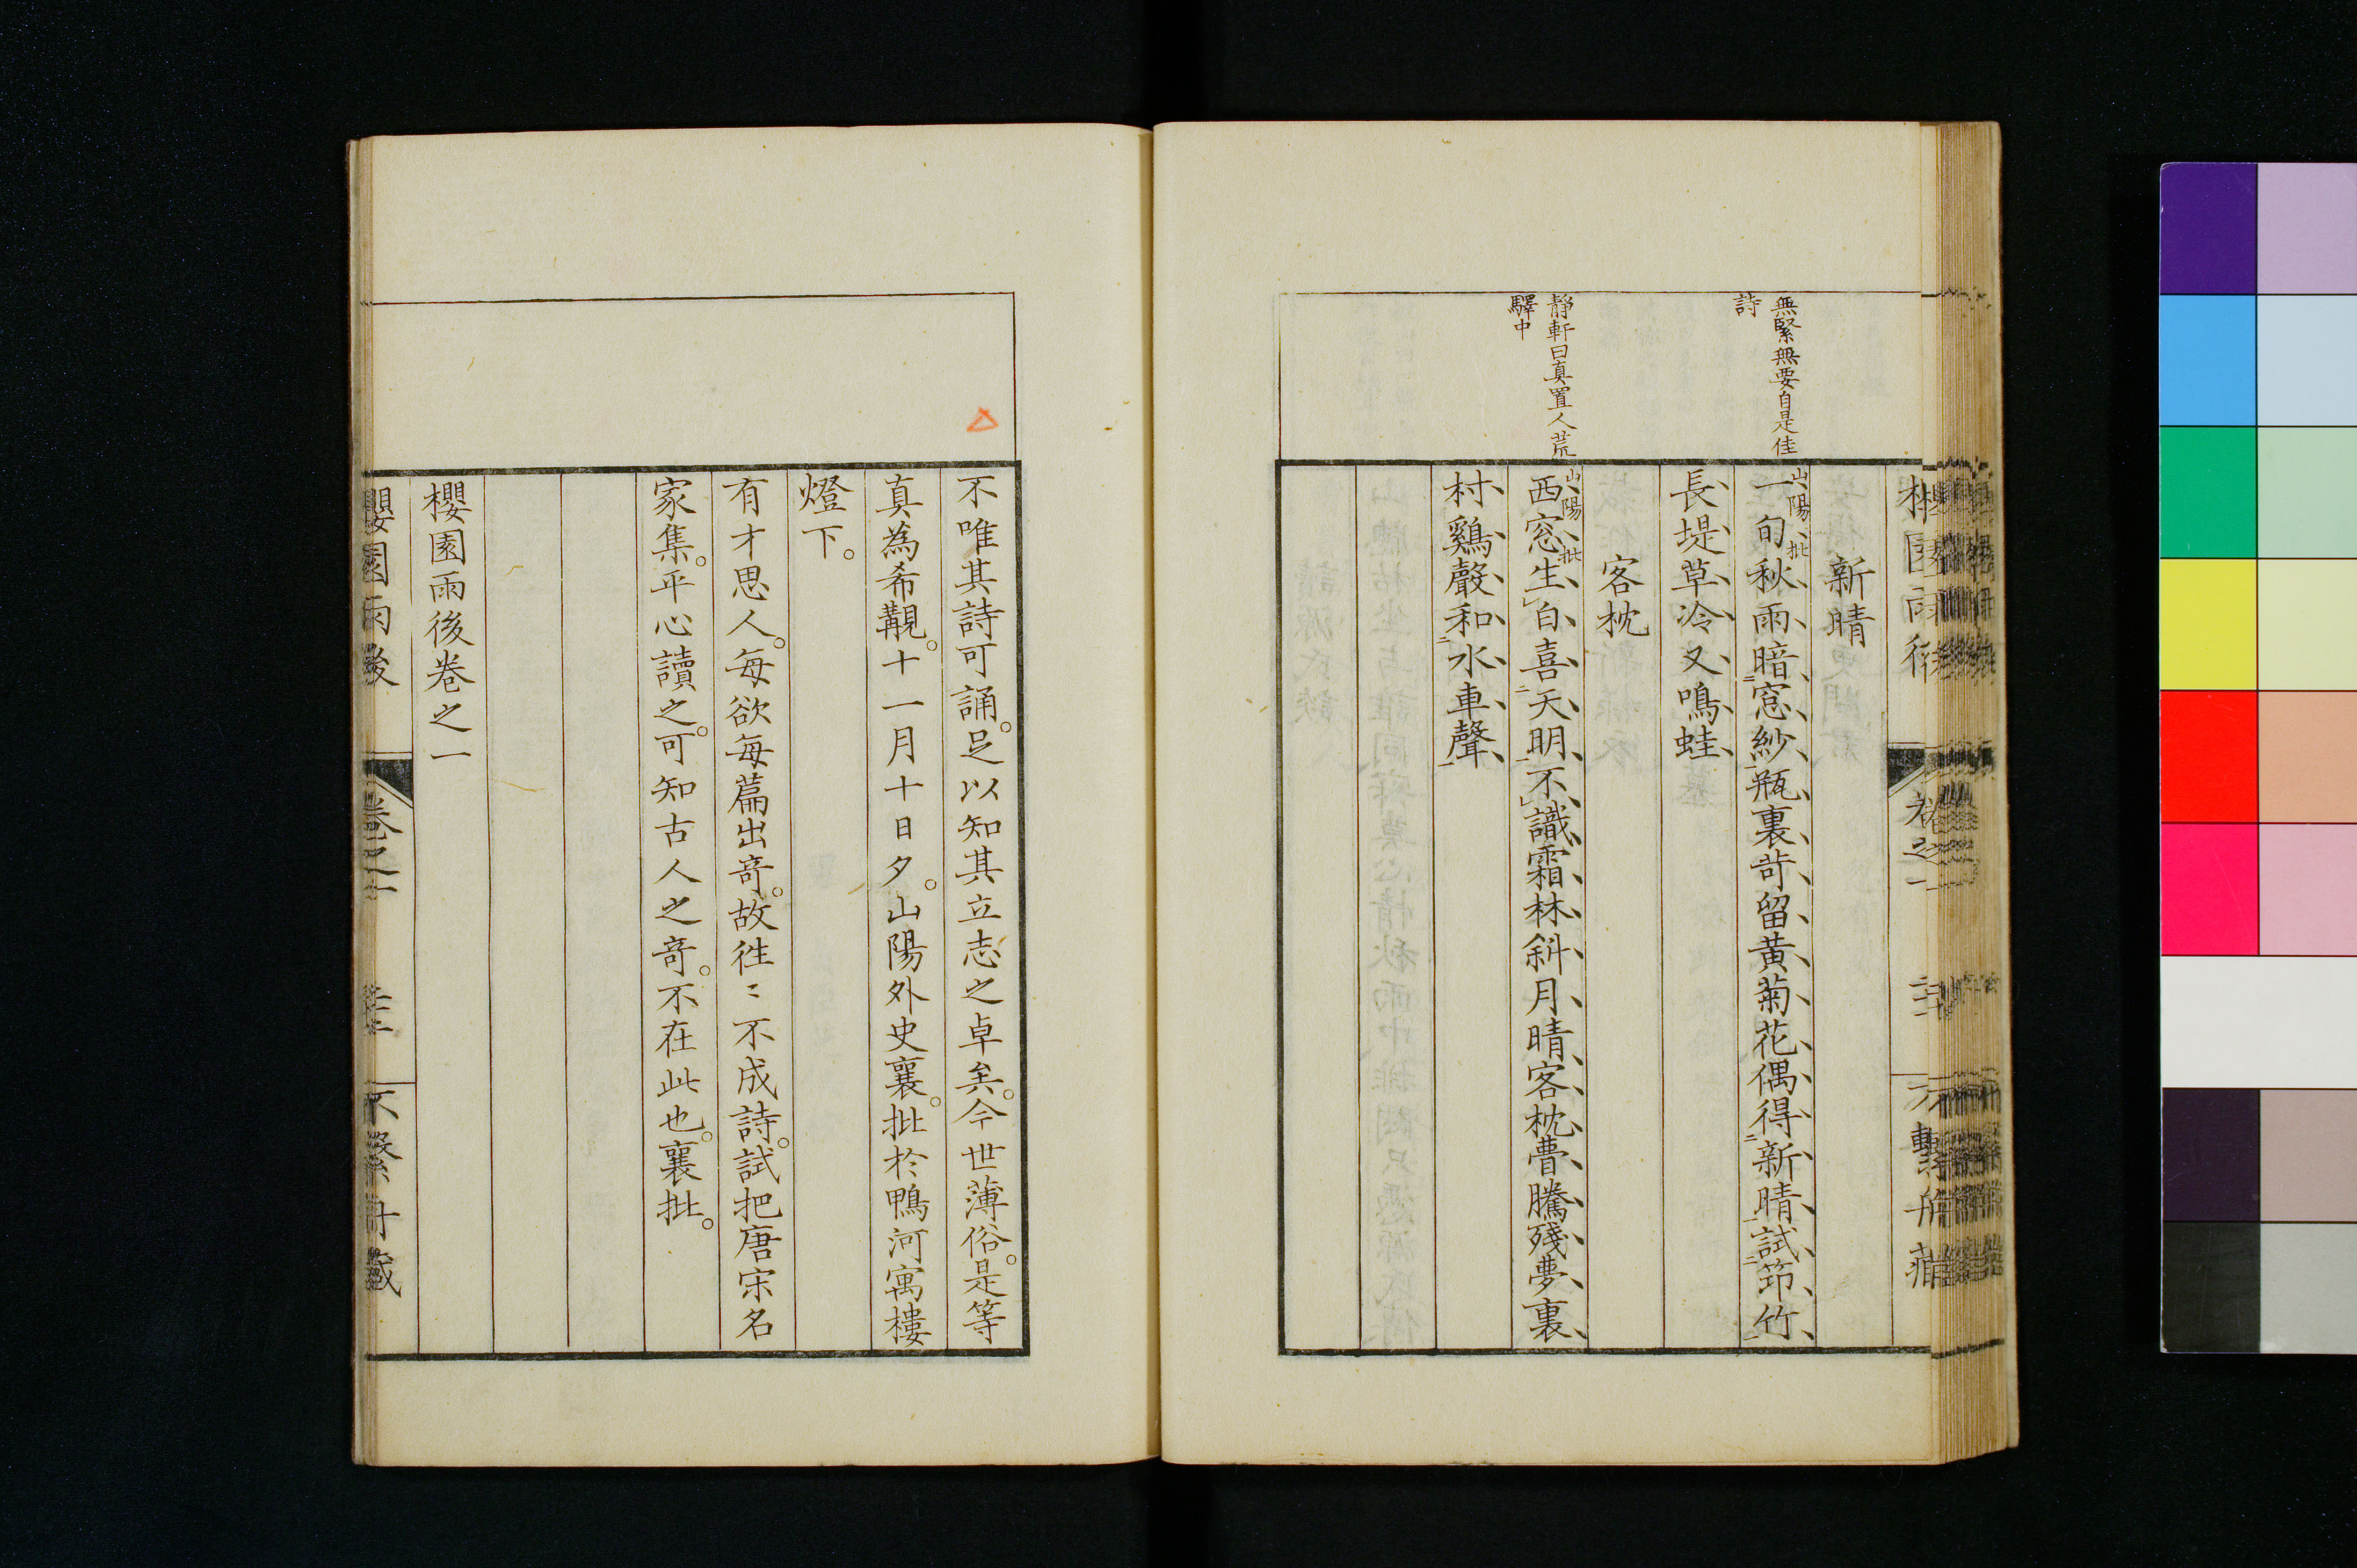 無緊無要自是佳
詩
靜軒曰真置人荒
驛中
新晴
山陽批
一旬秋雨暗窓紗瓶裏苛留黃菊花偶得新晴試筇竹
長堤草冷又鳴蛙
客枕
山陽批
西窓生白喜天明不識霜林斜月晴客枕瞢騰殘夢裏
村鷄聲和水車聲
不唯其詩可誦。足以知其立志之卓矣。今世薄俗。是等
真為希覯。十一月十日夕。山陽外史襄。批於鴨河寓樓
燈下。
有才思人。每欲每篇出奇。故徃〻不成詩。試把唐宋名
家集。平心讀之。可知古人之奇。不在此也。襄批。
櫻園雨後卷之一
櫻園雨後 卷之一 不繫舟藏